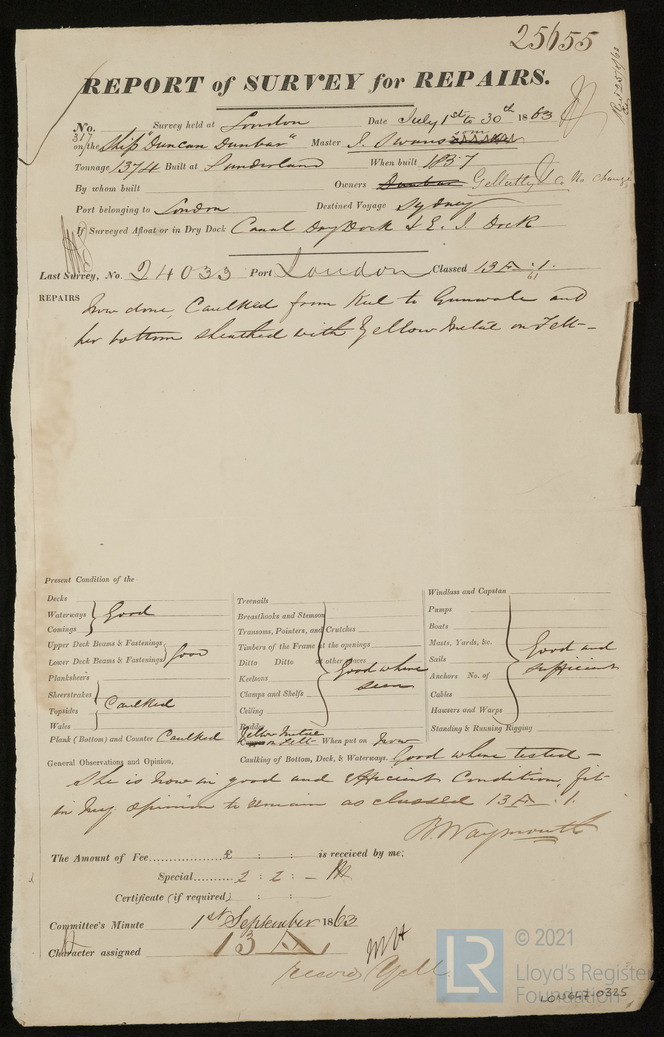 25655
REPORT of SURVEY for REPAIRS.
No. Survey held at London Date July 1st to 30th 1863
317
on the Ship "Duncan Dunbar" Master J. Owans
Tonnage 1374 Built at Sunderland When built 1857
By whom built Owners Dunbar Gellatly & Co No change
Port belonging to London Destined Voyage Sydney
If Surveyed Afloat or in Dry Dock Canal Dry Dock & E. I. Dock
Last Survey, No. 24033 Port London Classed 13 A. 1.
61
REPAIRS Now done, Caulked from Keel to Gunwale and
her bottom sheathed with Yellow Metal on Felt—
Present Condition of the
Decks
Waterways Good
Comings
Upper Deck Beams & Fastenings
Lower Deck Beams & Fastenings Good
Planksheers
Sheerstrakes
Topsides Caulked
Wales
Plank (Bottom) and Counter Caulked
Treenails
Breasthooks and Stemson
Transoms, Pointers, and Crutches
Timbers of the Frame at the openings
Ditto Ditto at other places Good where
Keelsons seen
Clamps and Shelfs
Ceiling
Rudder
Yellow Metal
on Felt When put on Now
Windlass and Capstan
Pumps
Boats
Masts, Yards, &c. Good and
Sails sufficient
Anchors No. of
Cables
Hawsers and Warps
Standing & Running Rigging
General Observations and Opinion, Caulking of Bottom, Deck, & Waterways. Good where tested—
She is now in good and efficient Condition, fit
in my opinion to remain as classed 13 A. 1.
B. Waymouth
The Amount of Fee £ : : is received by me;
Special 2 : 2 : —
Certificate (if required) : :
Committee's Minute 1st September 1863
Character assigned 13 A 1
© 2021
LR Lloyd's Register
Foundation
LON647-0325